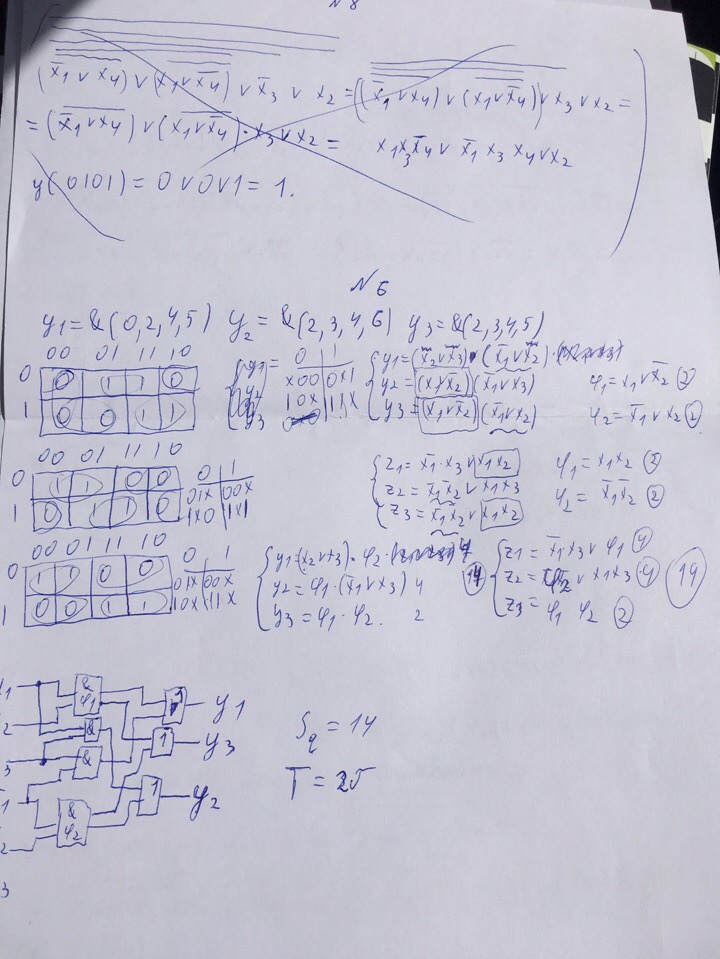 N 8
(x̄1 ∨ x̄4) ∨ (x1 ∨ x̄4) ∨ x̄3 ∨ x2 = ((x̄1 ∨ x4) ∨ (x1 ∨ x̄4)) ∨ x3 ∨ x2 =
= (x̄1 ∨ x4) ∨ (x1 ∨ x̄4) · x3 ∨ x2 = x1x3x̄4 ∨ x̄1 x3 x4 ∨ x2
y(0101) = 0 ∨ 0 ∨ 1 = 1.
N 6
y1 = &(0,2,4,5) y2 = &(2,3,4,6) y3 = &(2,3,4,5)
00 01 11 10
0 0 1 1 0
1 0 0 1 1
y1 = y2 y3
0 1
x00 0x1
10x 11x
y1 = (x2 ∨ x3) · (x̄1 ∨ x2)
y2 = (x1 ∨ x̄2)(x̄1 ∨ x3)
y3 = (x1 ∨ x̄2)(x̄1 ∨ x2)
φ1 = x1 ∨ x̄2 2
φ2 = x̄1 ∨ x2 2
00 01 11 10
0 1 1 0 0
1 0 1 1 0
0 1
01x 00x
1x0 1x1
z1 = x̄1 · x3 ∨ x1x2
z2 = x̄1x̄2 ∨ x1x3
z3 = x̄1x̄2 ∨ x1x2
φ1 = x1x2 2
φ2 = x̄1x̄2 2
00 01 11 10
0 1 1 0 0
1 0 0 1 1
0 1
01x 00x
10x 11x
y1 = (x2 ∨ x3) · φ2 4
y2 = φ1 · (x̄1 ∨ x3) 4
y3 = φ1 · φ2. 2
14
z1 = x̄1x3 ∨ φ1 4
z2 = φ2 ∨ x1x3 4
z3 = φ1 φ2 2
14
x1
2
3
1
2
3
& φ1
&
&
& φ2
1
1
1
y1
y3
y2
Sq = 14
T = 2τ